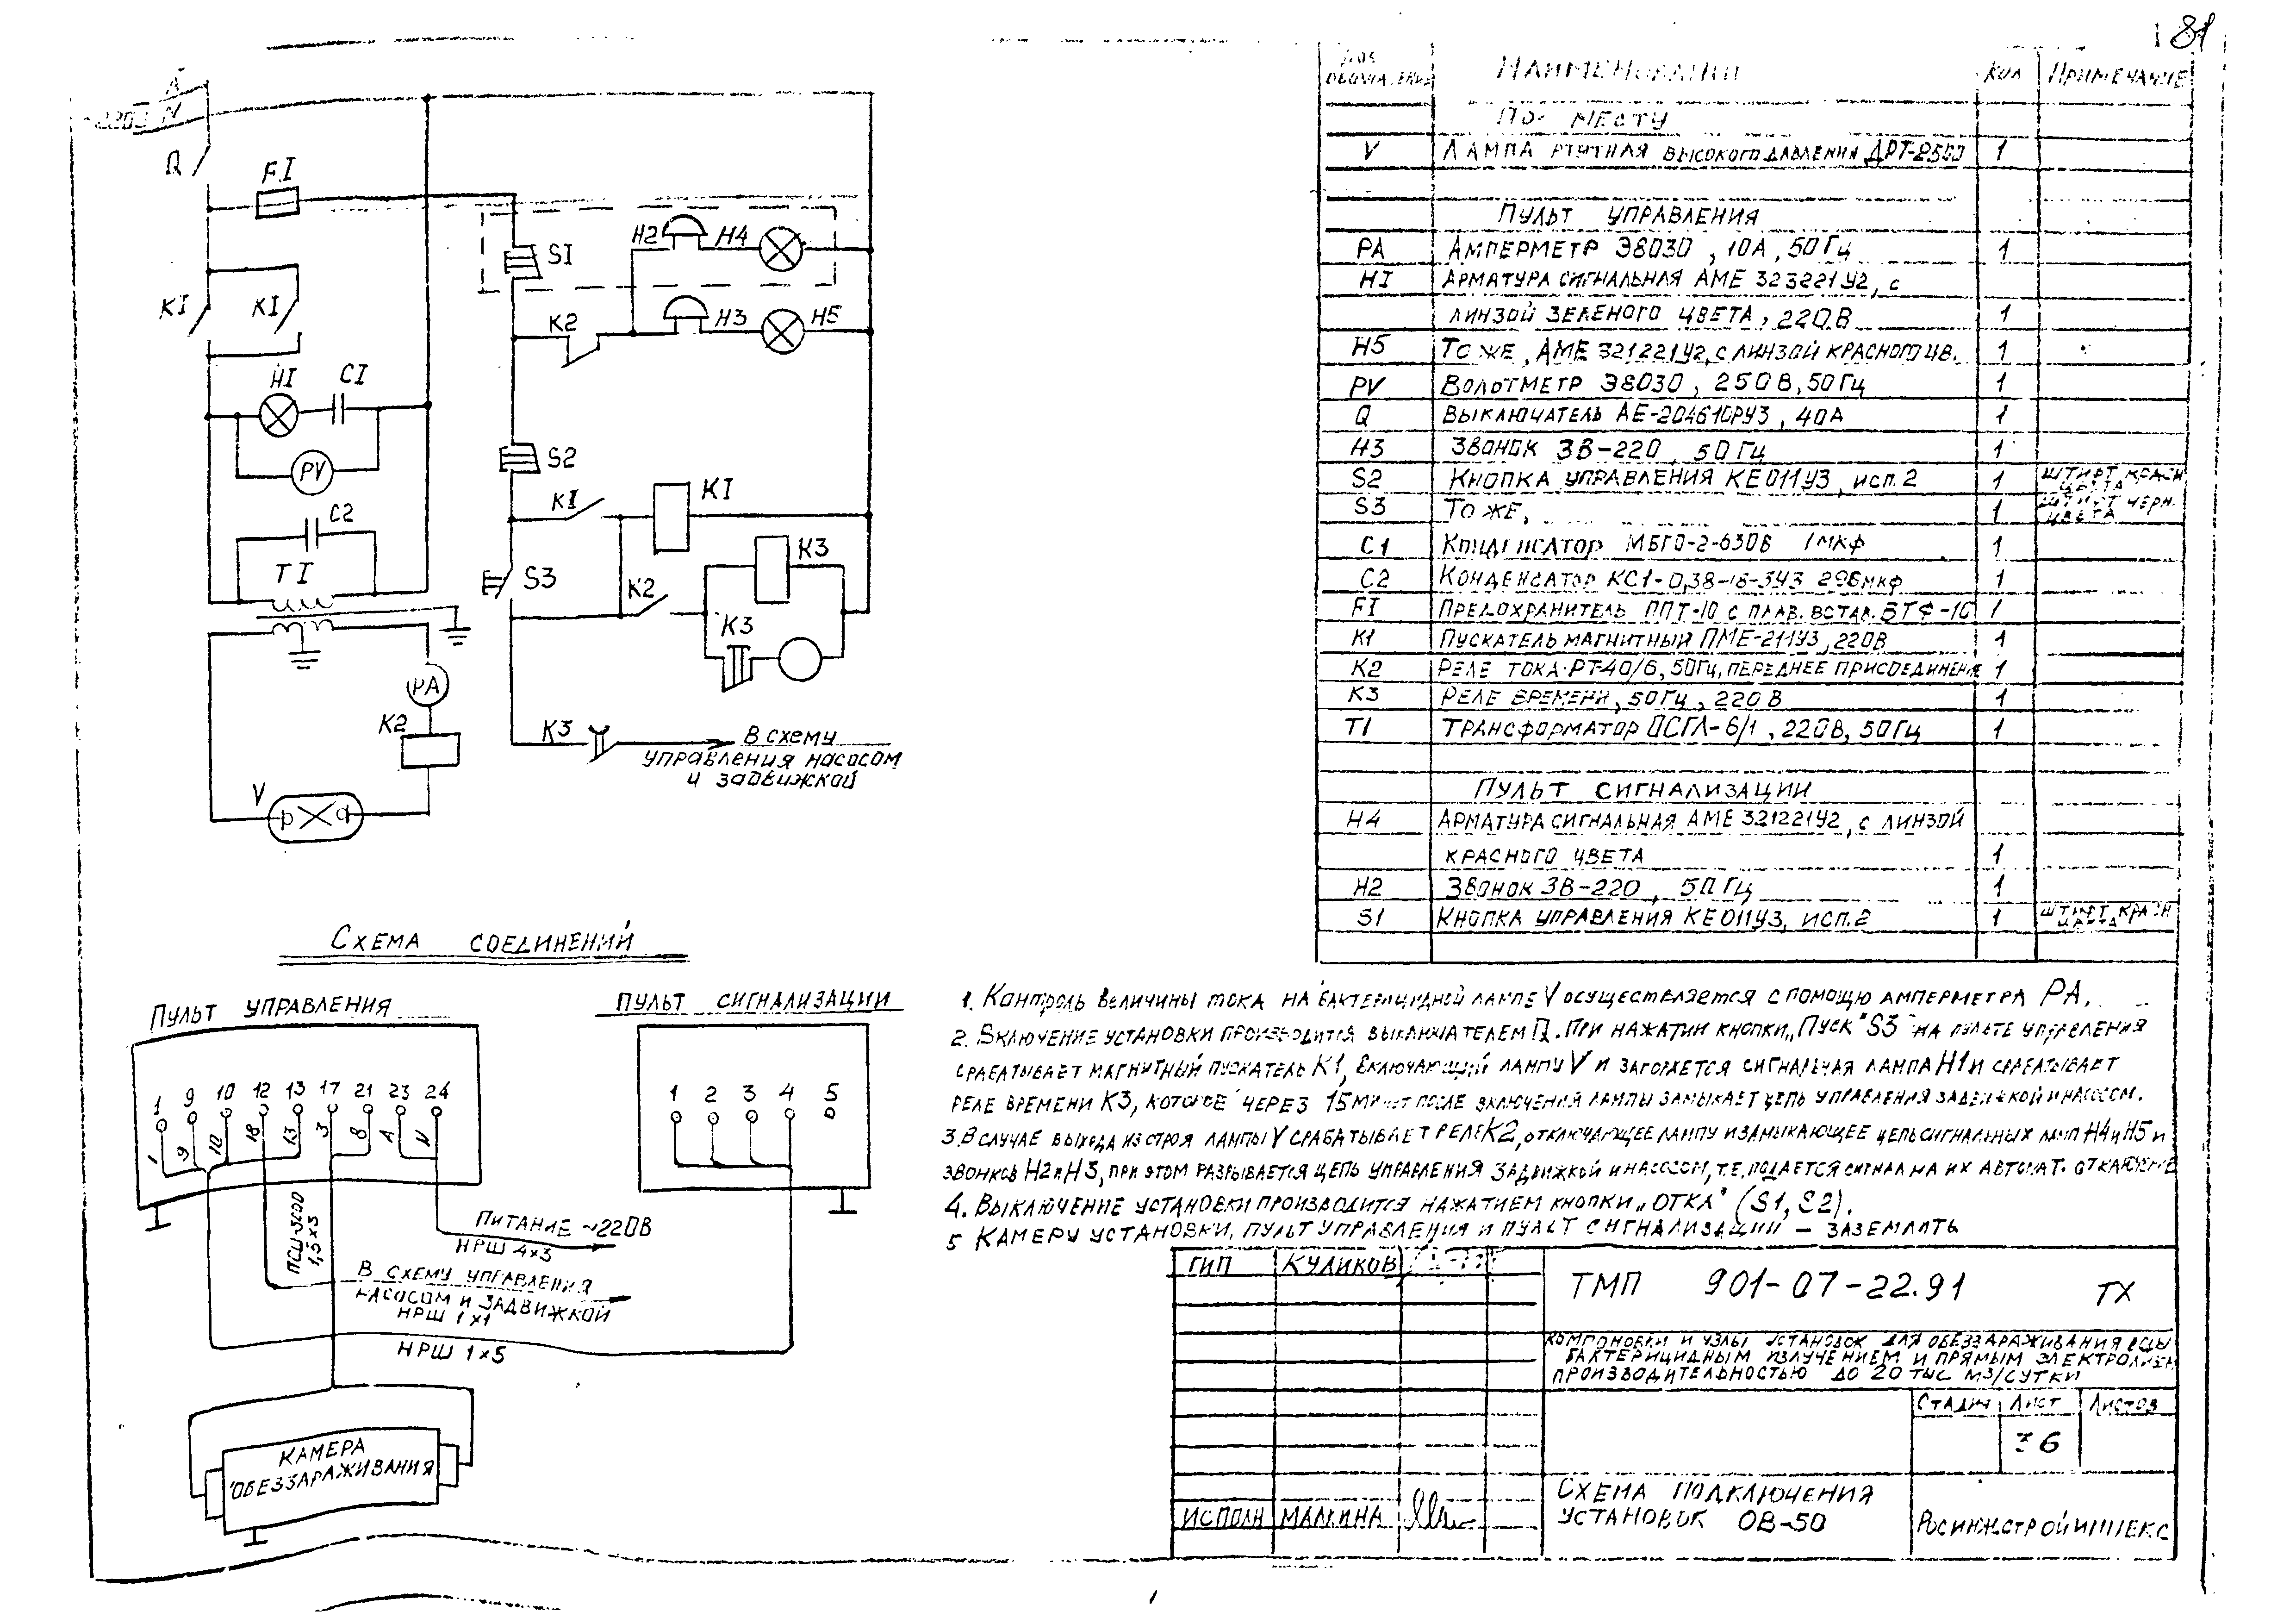 81
A
~220В N
Q
FI
S1
H2
H4
K2
H3
H5
KI
KI
HI
CI
PV
S2
C2
KI
KI
TI
S3
K2
K3
K3
PA
K2
V
K3
В схему
управления насосом
и задвижкой
Наименование
Кол
Примечание
По месту
V Лампа ртутная высокого давления ДРТ-2500 1
Пульт управления
PA Амперметр Э8030, 10А, 50Гц 1
HI Арматура сигнальная АМЕ 323221У2, с
линзой зеленого цвета, 220В 1
H5 То же, АМЕ 321221У2, с линзой красного цв. 1
PV Волотметр Э8030, 250В, 50Гц 1
Q Выключатель АЕ-204610РУ3, 40А 1
H3 Звонок ЗВ-220, 50Гц 1
S2 Кнопка управления КЕ011У3, исп. 2 1 штифт красн цвета
S3 То же, 1 штифт черн. цвета
C1 Конденсатор МБГО-2-630В 1мкф 1
C2 Конденсатор КС1-0,38-18-3У3 296мкф 1
FI Предохранитель ППТ-10 с плав. встав. ВТФ-10 1
K1 Пускатель магнитный ПМЕ-211У3, 220В 1
K2 Реле тока РТ-40/6, 50Гц, переднее присоединение 1
K3 Реле времени, 50Гц, 220В 1
T1 Трансформатор ОСГЛ-6/1, 220В, 50Гц 1
Пульт сигнализации
H4 Арматура сигнальная АМЕ 321221У2, с линзой
красного цвета 1
H2 Звонок ЗВ-220, 50Гц 1
S1 Кнопка управления КЕ011У3, исп. 2 1 штифт красн цвета
Схема соединений
Пульт управления
1 9 10 12 13 17 21 23 24
1 9 10 18 К3 3 8 А N
Пульт сигнализации
1 2 3 4 5
1,5х3
Питание ~220В
НРШ 4х3
В схему управления
насосом и задвижкой
НРШ 1х1
НРШ 1х5
Камера
обеззараживания
1. Контроль величины тока на бактерицидной лампе V осуществляется с помощью амперметра PA.
2. Включение установки производится выключателем Q. При нажатии кнопки „Пуск" S3 на пульте управления
срабатывает магнитный пускатель K1, включающий лампу V и загорается сигнальная лампа H1 и срабатывает
реле времени K3, которое через 15 минут после включения лампы замыкает цепь управления задвижкой и насосом.
3. В случае выхода из строя лампы V срабатывает реле K2, отключающее лампу и замыкающее цепь сигнальных ламп H4 и H5 и
звонков H2 и H3, при этом разрывается цепь управления задвижкой и насосом, т.е. подается сигнал на их автомат. отключение
4. Выключение установки производится нажатием кнопки „Откл" (S1, S2).
5 Камеру установки, пульт управления и пульт сигнализации – заземлить
ГИП Куликов
ТМП 901-07-22.91 ТХ
Компоновки и узлы установок для обеззараживания воды
бактерицидным излучением и прямым электролизом
производительностью до 20 тыс м3/сутки
Стадия Лист Листов
36
Схема подключения
установок ОВ-50
Исполн Малкина